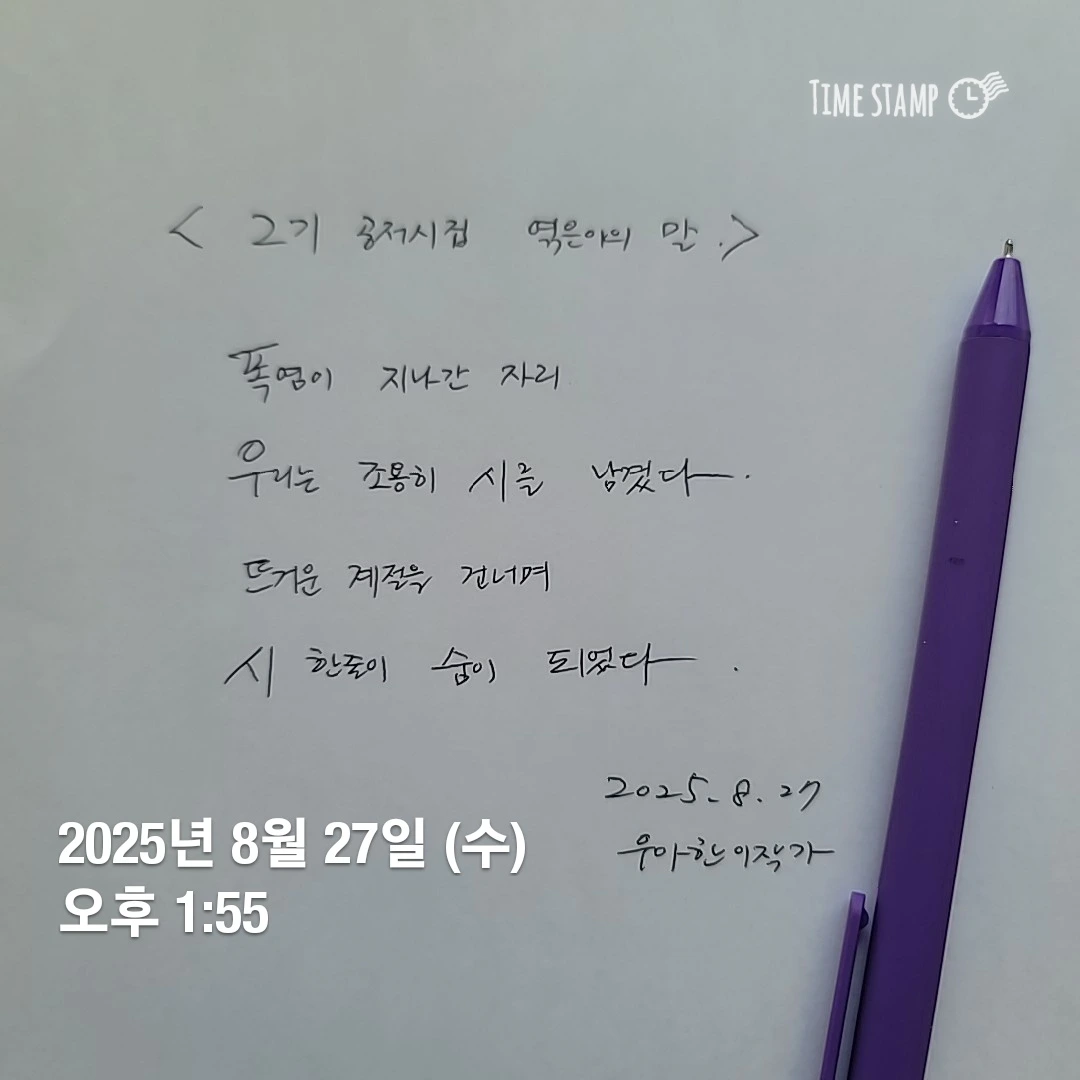 TIME STAMP
< 2기 공저시집 엮은이의 말.>
폭염이 지나간 자리
우리는 조용히 시를 남겼다.
뜨거운 계절을 건너며
시 한줄이 숨이 되었다.
2025. 8. 27
우아한이작가
2025년 8월 27일 (수)
오후 1:55